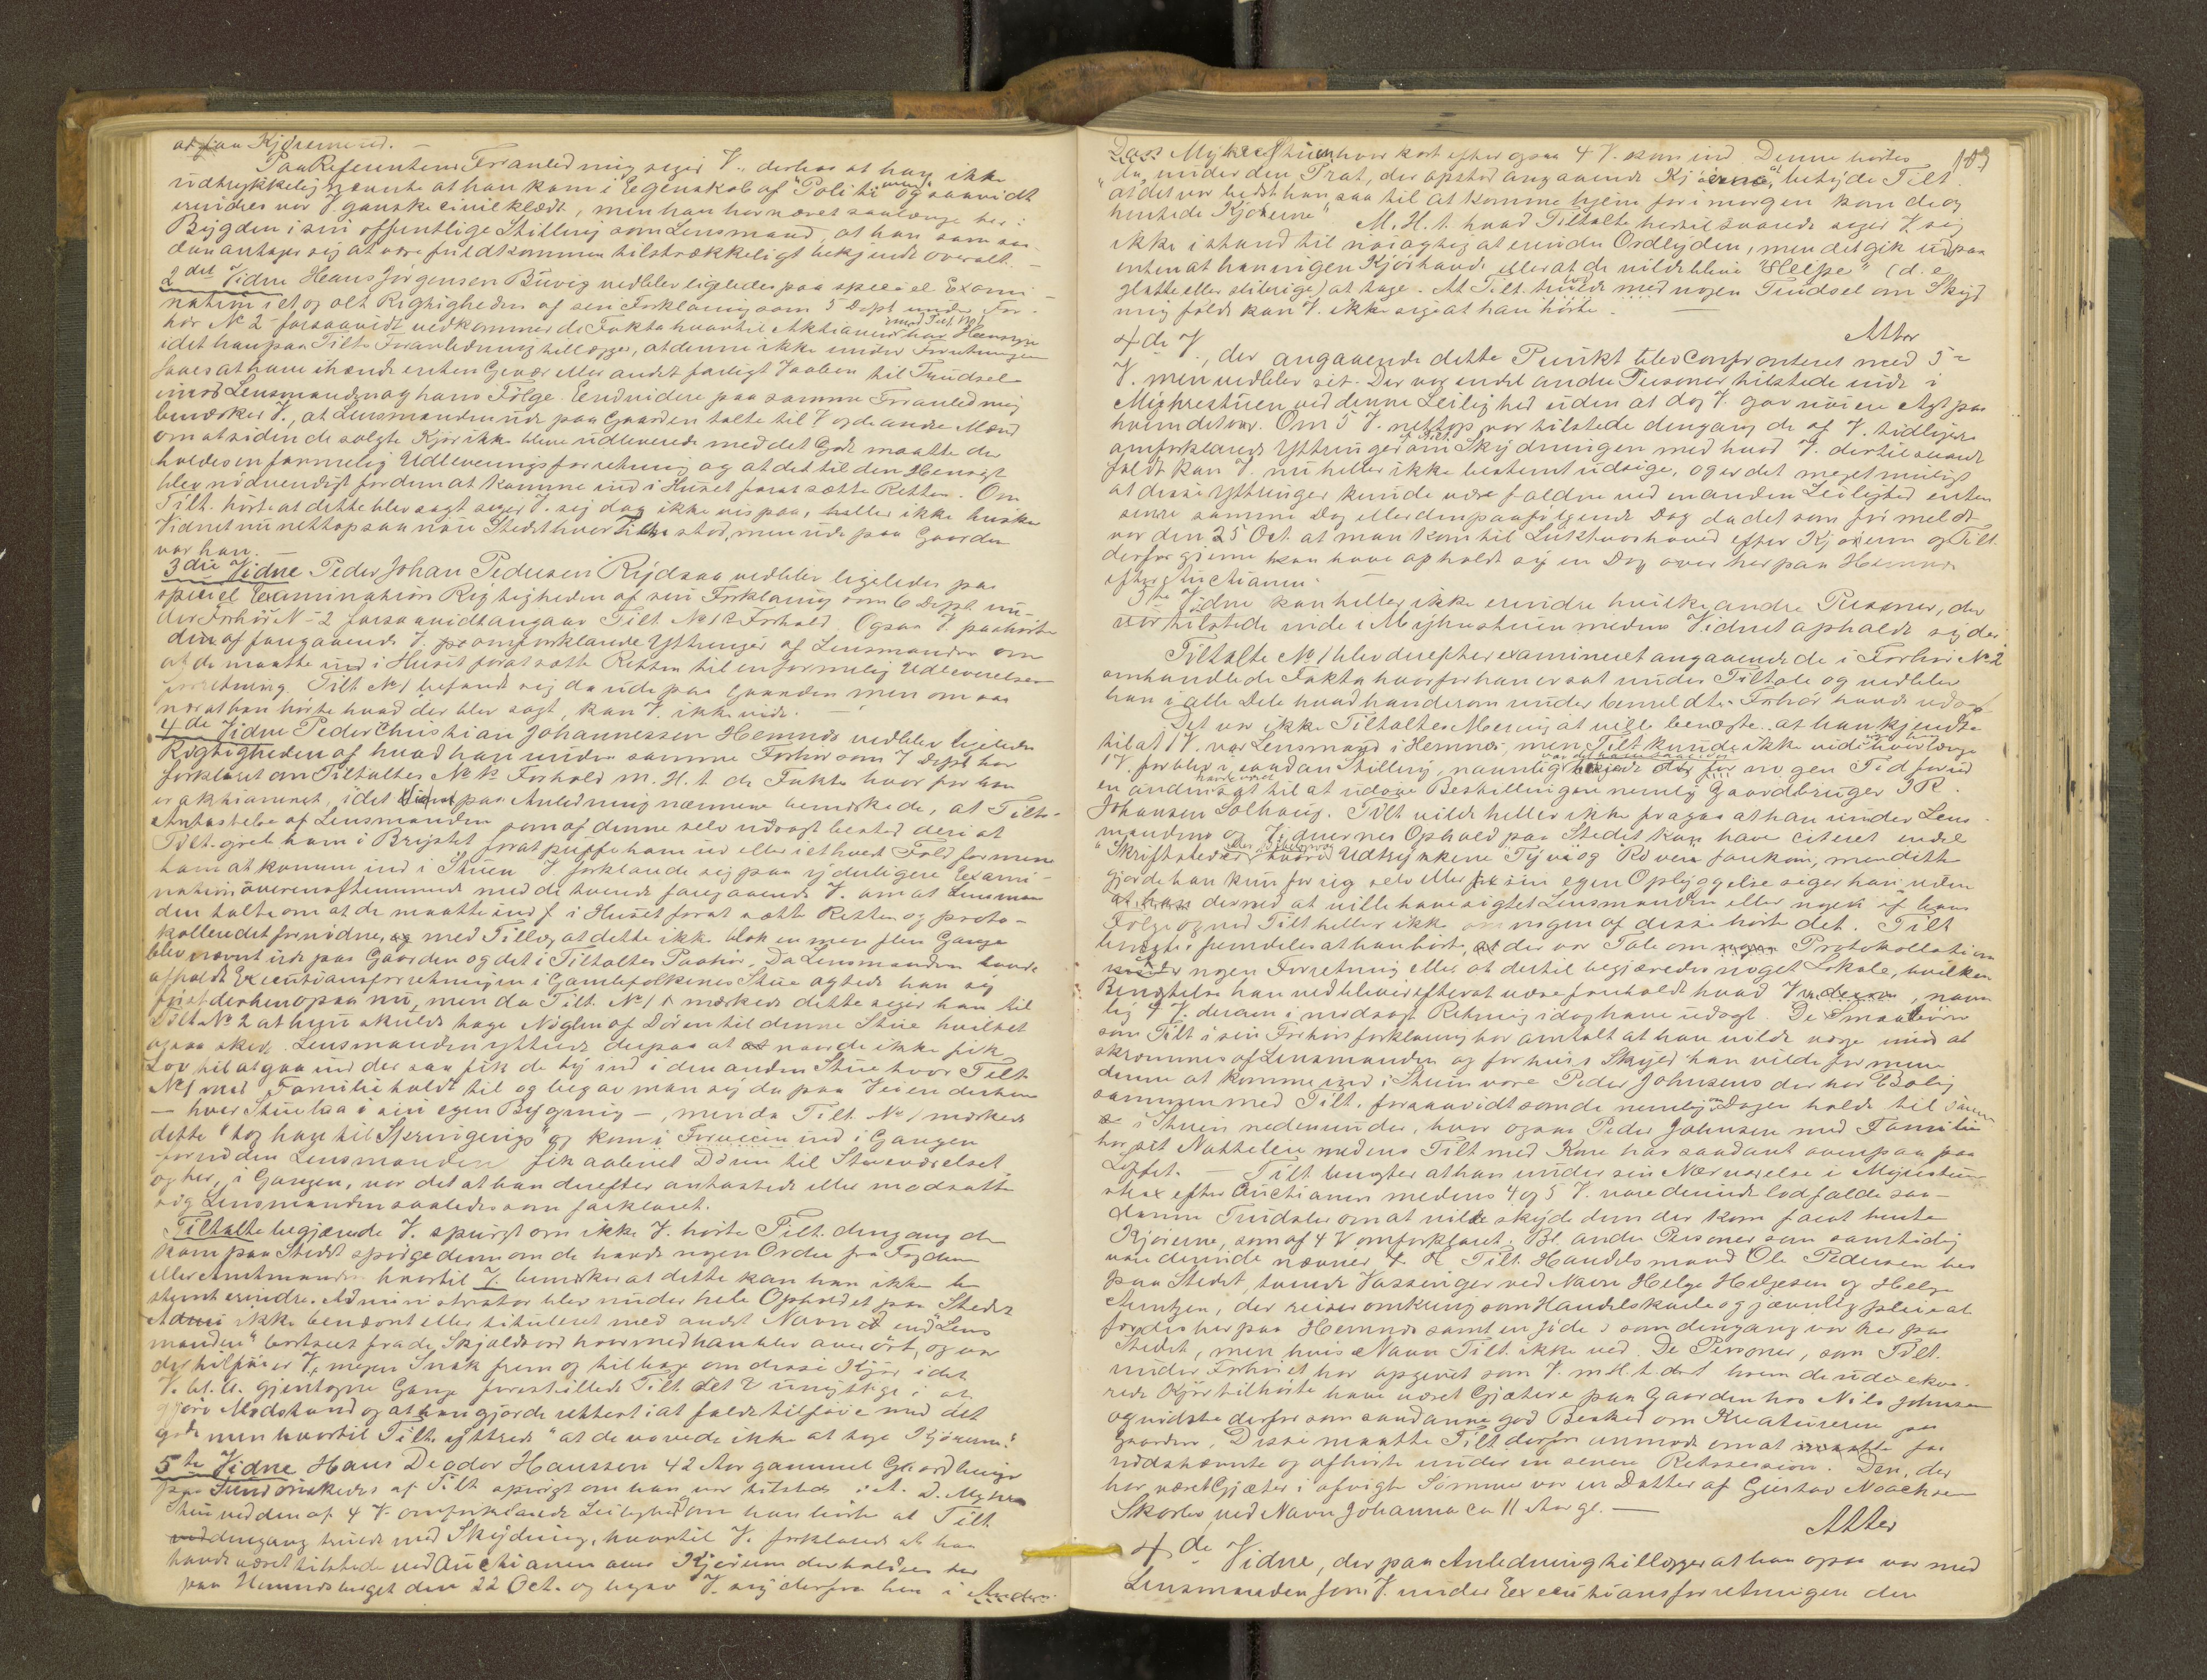 at faa Kjørerne ud. —
Paa Referentens Foranledning siger V. derhos at han ikke
udtrykkelig nævnte at han kom i Egenskab af "Politi" og saavidt
erindres var V. ganske civilklædt, men han har været saalænge her i
Bygden i sin offentlige Stilling som Lensmand, at han som saa-
dan antager sig at være fuldkommen tilstrækkeligt bekjendt overalt. —
2det Vidne Hans Jørgensen Buvig vedblev ligeledes paa speciel Exami-
nation i et og alt Rigtigheden af sin Forklaring som 5 Dept. under For-
hør No 2 forsaavidt vedkommer de Fakta hvortil Aktionen mod Tilt. No 1 har Hensyn
idet han paa Tilts Foranledning tillægger, at denne ikke under Forretningen
saaes at have ihænde enten Gevær eller andet farligt Vaaben til Trudsel
imod Lensmanden og hans Følge. Endvidere paa samme Foranledning
bemærker V., at Lensmanden ude paa Gaarden talte til V og de andre Mænd
om at siden de solgte Kjør ikke bleve udleverede med det Gode maatte der
holdes en formelig Udleveringsforretning og at det til den Hensigt
blev nødvendigt for dem at komme ind i Huset forat sætte Retten. Om
Tilt. hørte at dette blev sagt siger V. sig dog ikke vis paa, heller ikke husker
Vidnet nu nettop saa nøie Stedet hvor Tilt. stod, men ude paa Gaarden
var han. —
3die Vidne Peder Johan Pedersen Rydsaa vedblev ligeledes paa
speciel Examination Rigtigheden af sin Forklaring som 6 Dept. un-
der Forhør No 2 forsaavidt angaar Tilt. No 1s Forhold. Ogsaa V. paahørte
de af foregaaende V. omforklarede Yttringer af Lensmanden om
at de maatte ind i Huset forat sætte Retten til en formelig Udleverelses-
forretning. Tilt No 1 befandt sig da ude paa Gaarden, men om saa
nær at han hørte hvad der blev sagt, kan V. ikke vide. —
4de Vidne Peder Christian Johannessen Hemnes vedblev ligeledes
Rigtigheden af hvad han under samme Forhør som 7 Dept har
forklaret om Tiltaltes No 1s Forhold m. H. t. de Fakta hvorfor han
er aktioneret, idet Vidnet paa Anledning nærmere bemærkede, at Tilts-
Antastelse af Lensmanden som af denne selv udsagt bestod deri at
Tilt. greb ham i Brystet forat puffe ham ud eller i ethvert Fald formene
ham at komme ind i Stuen. V forklarede sig paa yderligere Exami-
nation overensstemmende med de tvende foregaaende V. om at Lensman-
den talte om at de maatte ind i Huset forat sætte Retten og proto-
kollere det fornødne, med Tillæg at dette ikke blot en men flere Gange
blev nævnt ude paa Gaarden og det i Tiltaltes Paahør. Da Lensmanden havde
afholdt Executionsforretningen i Gamlefolkenes Stue agtede han sig
først derhen ogsaa nu, men da Tilt. No 1 mærkede dette siger han til
Tilt No 2 at hun skulde tage Nøglen af Døren til denne Stue hvilket
ogsaa skede. Lensmanden yttrede derpaa at naar de ikke fik
Lov til at gaa ind der saa fik de ty ind i den anden Stue hvor Tilt
No 1 med Familie holdt til og begav man sig da paa Veien derhen
— hver Stue laa i sin egen Bygning —, men da Tilt. No 1 mærkede
dette "tog han til Springerings" og kom i Forveien ind i Gangen
forud den Lensmanden fik aabnet Døren til Stueværelset
og her, i Gangen, var det at han derefter antastede eller modsatte
sig Lensmanden saaledes som forklaret.
Tiltalte begjærede V. spurgt om ikke V. hørte Tilt. dengang de
kom paa Stedet spørge dem om de havde nogen Ordre fra Fogden
eller Amtmanden hvortil V. bemærker at dette kan han ikke be-
stemt erindre. Administrator blev under hele Opholdet paa Stedet
ikke benævnt eller tituleret med andet Navn end "Lens-
manden" bortseet fra de Skjældsord hvormed han blev overøst, og var
der tilføier V, megen Snak frem og tilbage om disse Kjør idet
V. bl. a. gjentagne Gange forestillede Tilt det unyttige i at
gjøre Modstand og at han gjorde rettest i at falde tilføie med det
gode men hvortil Tilt. yttrede "at de vovede ikke at tage Kjørerne."
5te Vidne Hans Deodor Hanssen 42 Aar gammel Gaardbruger
paa Sund ønskedes af Tilt spurgt om han var tilstede i A. D. Myhres
Stue ved den af 4 V. omforklarede Leilighed om han hørte at Tilt
dengang truede med Skydning, hvortil V. forklarede at han
havde været tilstede ved Auctionen over Kjørerne der holdtes her
paa Hemnesberget den 22 Oct. og begav V. sig derfra hen i Anders
Dass Myhrestuen hvor kort efter ogsaa 4 V. kom ind. Denne hørtes 103
da, under den Prat, der opstod angaaende Kjørerne, at betyde Tilt
"at det var bedst han saa til at komme hjem for imorgen kom de og
hentede Kjørerne" M. H. t. hvad Tiltalte hertil svarede siger V. sig
ikke istand til nøiagtig at erindre Ordlyden, men det gik ud paa
enten at han ingen Kjør havde eller at de vilde blive "Sleipe" (d. e.
glatte eller slibrige) at tage. At Tilt. truede med nogen Trudsel om Skyd-
ning faldt kan V. ikke sige at han hørte. —
Atter
4de V., der angaaende dette Punkt blev confronteret med 5te
V. men vedblev sit. Der var endel andre Personer tilstede inde i
Myhrestuen ved denne Leilighed uden at dog V. gav nøiere Agt paa
hvem det var. Om 5 V. nettop var tilstede dengang de af V. tidligere
omforklarede Yttringer af Tilt. om Skydningen med hvad V. dertil svarede
faldt kan V. nu heller ikke bestemt udsige, og er det meget muligt
at disse Yttringer kunde være faldne ved en anden Leilighed enten
senere samme Dag eller den paafølgende Dag da det som før meldt
var den 25 Oct. at man kom til Luktvashoved efter Kjørerne og Tilt.
derfor gjerne kan have opholdt sig en Dag over her paa Hemnes
efter Auctionen. —
5te Vidne kan heller ikke erindre hvilke andre Personer, der
var tilstede inde i Myhrestuen medens Vidnet opholdt sig der.
Tiltalte No 1 blev derefter examineret angaaende de i Forhør No 2
omhandlede Fakta hvorfor han er sat under Tiltale og vedblev
han i alle Dele hvad han derom under bemeldte Forhør havde udsagt
Det var ikke Tiltaltes Mening at ville benægte at han kjendte
til at 1 V. var Lensmand i Hemnes, men Tilt kunde ikke vide hvorlænge
1 V. forblev i saadan Stilling, navnlig da for nogen Tid forud
en anden havde været sat til at udøve Bestillingen nemlig Gaardbruger I R.
Johansen Solhaug. Tilt vilde heller ikke fragaa at han under Lens-
mandens og Vidnernes Ophold paa Stedet kan have citeret endel
"Skriftsteder", hvori Udtrykkene "Tyve" og "Røvere" forekom, men dette
gjorde han kun for sig selv eller sin egen Opbyggelse siger han uden
dermed at ville have sigtet Lensmanden eller nogen af hans
Følge og ved Tilt heller ikke om nogen af disse hørte det. Tilt
benægter fremdeles at han hørte, der var Tale om Protokollation
nogen Forretning eller at dertil begjæredes noget Lokale, hvilken
Benægtelse han vedblev efterat være foreholdt hvad Vidnerne, navn-
lig 4 V. derom i modsat Retning idag have udsagt. De Smaabørn
som Tilt i sin Forhørsforklaring har omtalt at han vilde værge imod at
skræmmes af Lensmanden og for hvis Skyld han vilde formene
denne at komme ind i Stuen vare Peder Johnsens der har Bolig
sammen med Tilt. forsaavidt som de nemlig om Dagen holde til sammen
i Stuen nedenunder, hvor ogsaa Peder Johnsen med Familie
har sit Natteleie medens Tilt med Kone har saadant ovenpaa paa
Loftet. — Tilt benægter at han under sin Nærværelse i Myrestuen
strax efter Auctionen medens 4 og 5 V. vare derinde lod falde saa-
danne Trudsler om at ville skyde dem der kom forat hente
Kjørerne, som af 4 V omforklaret. Bl. andre Personer som samtidig
vare derinde nævner Tilt. Handelsmand Ole Pedersen her
paa Stedet, tvende Vossinger ved Navn Helge Helgesen og Helge
Arntzen, der reiser omkring som Handelskarle og jævnlig pleier at
færdes her paa Hemnes samt en Jøde, som dengang var her paa
Stedet, men hvis Navn Tilt. ikke ved. De Personer, som Tilt.
under Forhøret har opgivet som V. m. H. t. det hvem de udexekve-
rede Kjør tilhørte have været Gjætere paa Gaarden hos Nils Johnsen
og vidste derfor som saadanne god Besked om Kreaturerne paa
Gaarden. Disse maatte Tilt derfor anmode om at faa
udstævnte og afhørte under en senere Retssession. Den, der
har været Gjæter i afvigte Sommer var en Datter af Gustav Noachsen
Skorbo ved Navn Johanna ca 11 Aar gl. —
Atter
4de Vidne, der paa Anledning tillægger at han ogsaa var med
Lensmanden som V. under Executionsforretningen den